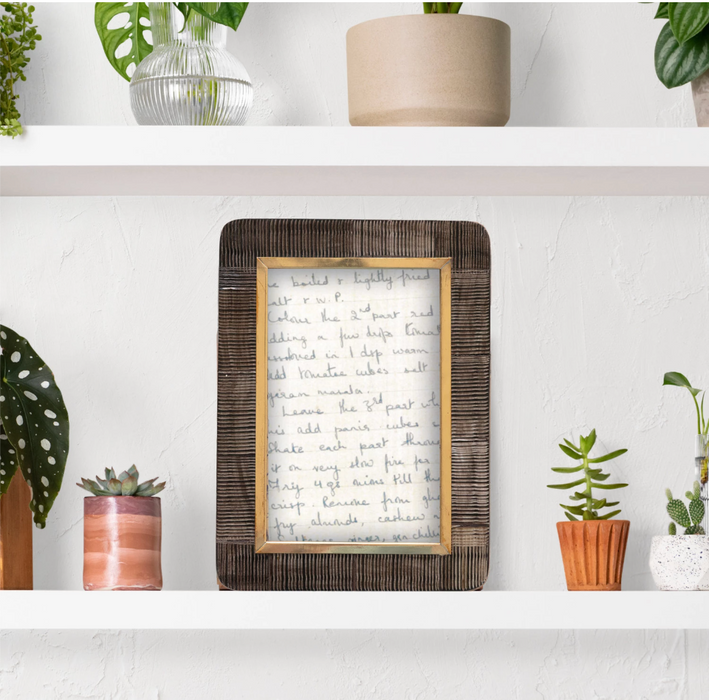 boiled & lightly fried
salt & W.P.
Colour the 2nd part red
adding a few drops tomat
dissolved in 1 dsp warm
add tomatoe cubes salt
garam masala.
Leave the 3rd part
add panir cubes
Shake each part
it on very slow fire for
Fry 4 gt onions till the
crisp. Remove from ghe
fry almonds, cashew
ginger, gen chili